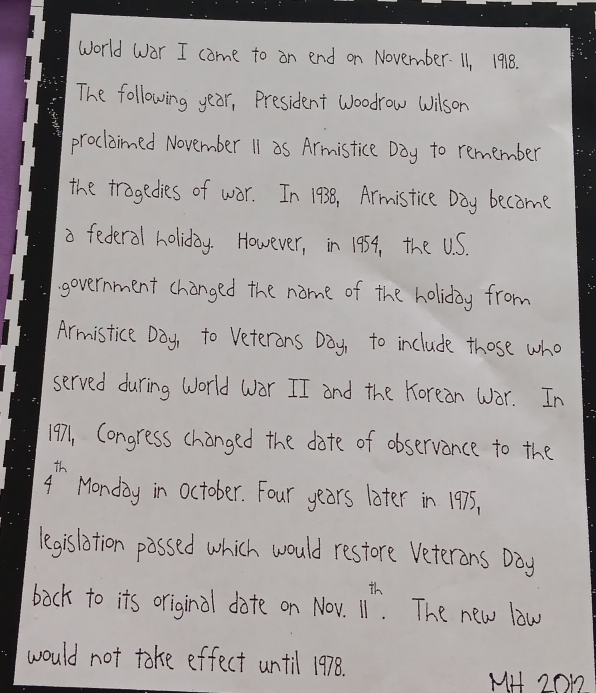 World War I came to an end on November 11, 1918.
The following year, President Woodrow Wilson
proclaimed November 11 as Armistice Day to remember
the tragedies of war. In 1938, Armistice Day became
a federal holiday. However, in 1954, the U.S.
government changed the name of the holiday from
Armistice Day, to Veterans Day, to include those who
served during World War II and the Korean War. In
1971, Congress changed the date of observance to the
4th Monday in October. Four years later in 1975,
legislation passed which would restore Veterans Day
back to its original date on Nov. 11th. The new law
would not take effect until 1978.
MH 2012